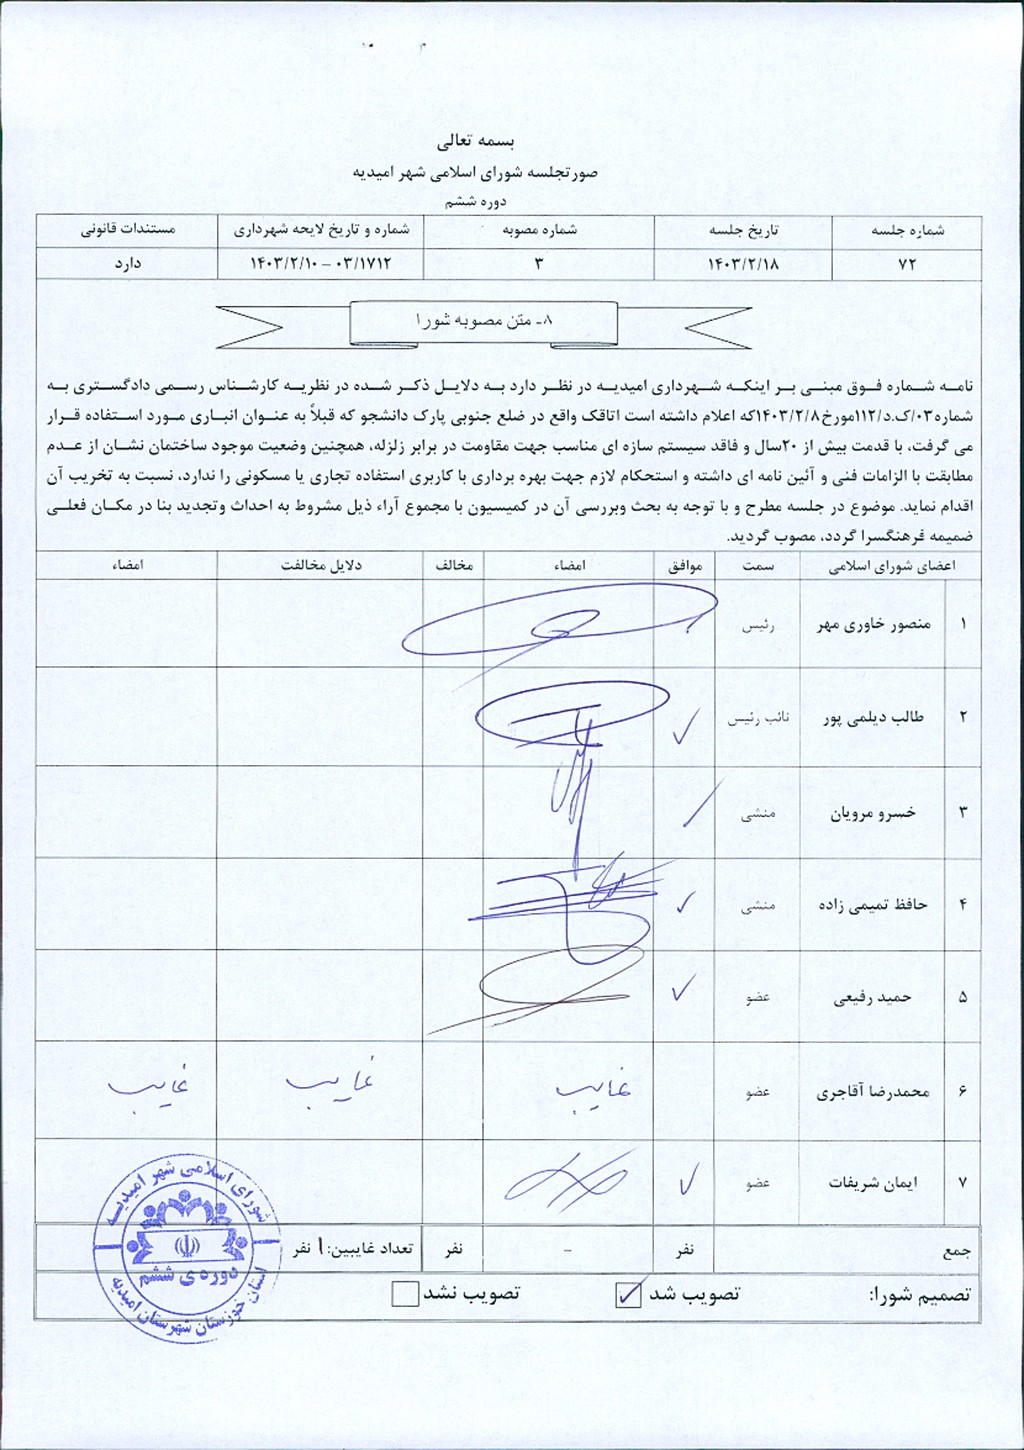 بسمه تعالی
صورتجلسه شورای اسلامی شهر امیدیه
دوره ششم
شماره جلسه تاریخ جلسه شماره مصوبه شماره و تاریخ لایحه شهرداری مستندات قانونی
۷۲ ۱۴۰۳/۲/۱۸ ۳ ۰۳/۱۷۱۲ – ۱۴۰۳/۲/۱۰ دارد
۸- متن مصوبه شورا
نامه شماره فوق مبنی بر اینکه شهرداری امیدیه در نظر دارد به دلایل ذکر شده در نظریه کارشناس رسمی دادگستری به
شماره۰۳/ک.د/۱۱۲مورخ۱۴۰۳/۲/۸که اعلام داشته است اتاقک واقع در ضلع جنوبی پارک دانشجو که قبلاً به عنوان انباری مورد استفاده قرار
می گرفت، با قدمت بیش از ۲۰سال و فاقد سیستم سازه ای مناسب جهت مقاومت در برابر زلزله، همچنین وضعیت موجود ساختمان نشان از عدم
مطابقت با الزامات فنی و آئین نامه ای داشته و استحکام لازم جهت بهره برداری با کاربری استفاده تجاری یا مسکونی را ندارد، نسبت به تخریب آن
اقدام نماید. موضوع در جلسه مطرح و با توجه به بحث وبررسی آن در کمیسیون با مجموع آراء ذیل مشروط به احداث وتجدید بنا در مکان فعلی
ضمیمه فرهنگسرا گردد، مصوب گردید.
اعضای شورای اسلامی سمت موافق امضاء مخالف دلایل مخالفت امضاء
۱ منصور خاوری مهر رئیس
۲ طالب دیلمی پور نائب رئیس
۳ خسرو مرویان منشی
۴ حافظ تمیمی زاده منشی
۵ حمید رفیعی عضو
۶ محمدرضا آقاجری عضو غایب غایب غایب
۷ ایمان شریفات عضو
جمع نفر - نفر تعداد غایبین: ۱ نفر
تصمیم شورا: تصویب شد تصویب نشد
شورای اسلامی شهر امیدیه
دوره ی ششم
استان خوزستان شهرستان امیدیه